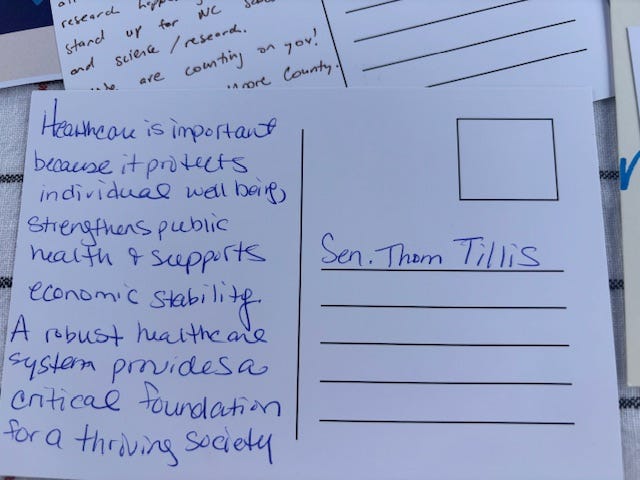 research
stand up for NC
and science/research.
are counting on you!
County.
Healthcare is important
because it protects
individual well being,
strengthens public
health & supports
economic stability.
A robust healthcare
system provides a
critical foundation
for a thriving society
Sen. Thom Tillis